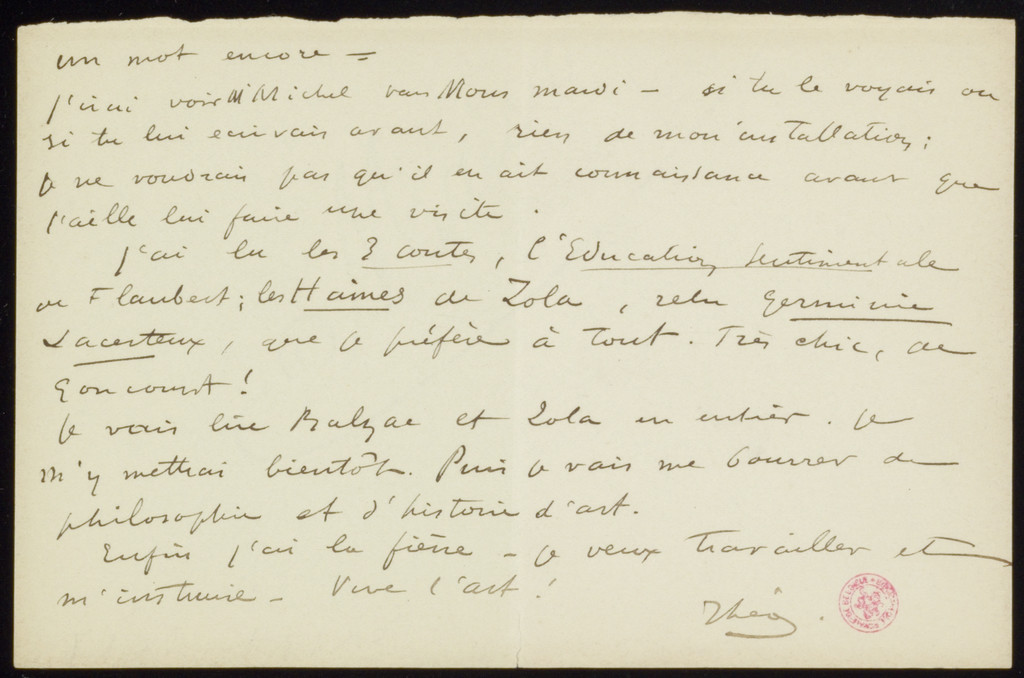 un mot encore =
j'irai voir M Michel van Mons mardi – si tu le voyais ou
si tu lui écrivais avant, rien de mon installation;
je ne voudrais pas qu'il en ait connaissance avant que
j'aille lui faire une visite.
J'ai lu les 3 contes, l'Education sentimentale
de Flaubert; les Haines de Zola, relu Germinie
Lacerteux, que je préfère à tout. Très chic, de
Goncourt!
Je vais lire Balzac et Zola en entier. Je
m'y mettrai bientôt. Puis je vais me bourrer de
philosophie et d'histoire d'art.
Enfin j'ai la fièvre – je veux travailler et
m'instruire – Vive l'art!
Théo.